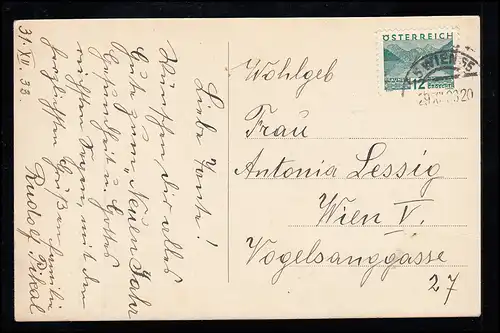 31. XII. 33.
Liebe Tante!
Wünschen Dir alles
Gute zum "Neuen Jahr
Gesundheit u. Gottes
reichsten Segen mit den
herzlichsten Grüßen Familie
Rudolf Pikal
ÖSTERREICH
12
GROSCHEN
WIEN 55
29.XII.33 20
Wohlgeb
Frau
Antonia Lessig
Wien V.
Vogelsanggasse
27